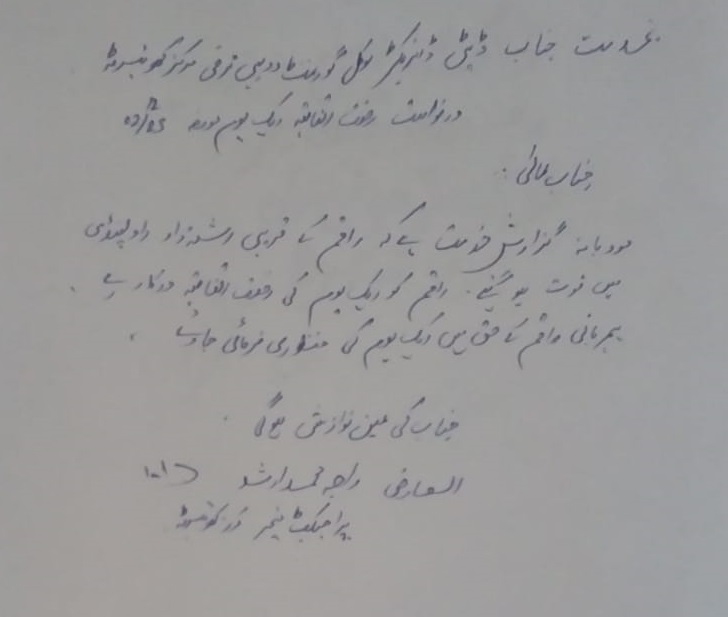 بخدمت جناب ڈپٹی ڈائریکٹر لوکل گورنمنٹ و دیہی ترقی مرکز
درخواست رخصت اتفاقیہ ایک یوم مورخہ
جناب عالی
مودبانہ گزارش خدمت ہے کہ راقم کے قریبی رشتہ دار راولپنڈی
میں فوت ہو گئے۔ راقم کو ایک یوم کی رخصت اتفاقیہ درکار ہے۔
بمہربانی راقم کے حق میں ایک یوم کی منظوری فرمائی جاوے۔
جناب کی عین نوازش ہوگی۔
العارض راجہ محمد ارشد
پراجیکٹ منیجر